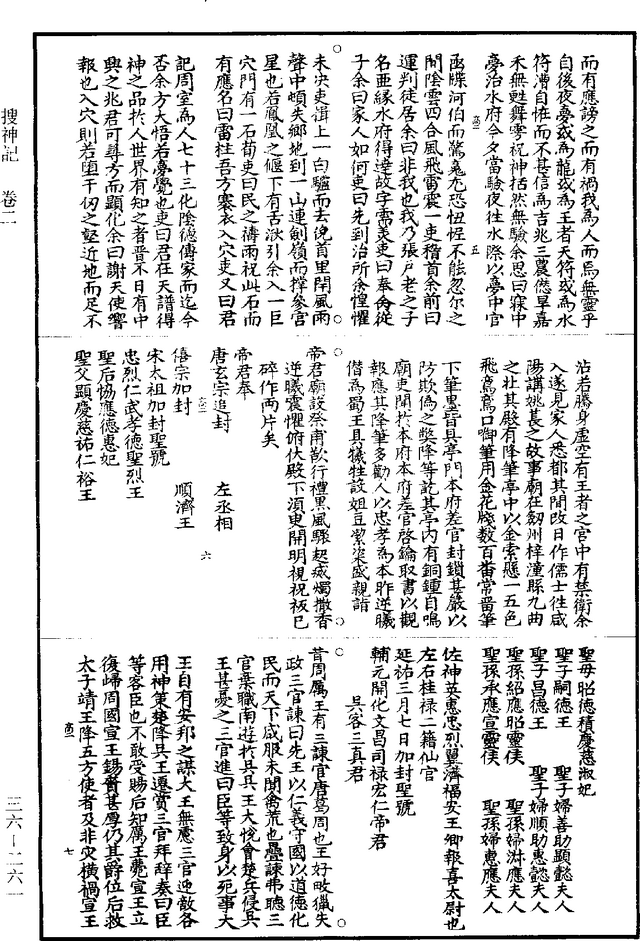 搜神記　卷二
三六—二六一
而有應謗之而有禍我為人而焉無靈乎
自後夜夢或為龍或為王者天符或為水
符漕自恠而不甚信為吉兆三農僁旱嘉
禾無甦舞雩祝神括然無驗余思曰寐中
夢治水府今夕當驗夜往水際以夢中官
函牒河伯而驚鬼尤恐怛惺不能忽尔之
間陰雲四合風飛雷震一吏稽首余前曰
運判徒居余曰非我也我乃張戶老之子
名亜緣水府得達故字霈美吏曰奉禽從
子余曰家人如何吏曰先到治所余惶懼
未決吏揖上一白驢而去俛首里閈風雨
聲中頓失鄉地到一山連劍嶺而撑參宮
星也若鳳凰之偃下有舌湫引余入一巨
穴門有一石荀吏曰民之禱雨祝此石而
有應名曰雷柱吾方褰衣入穴吏又曰君
記周室為人七十三化陰德傳家而迄今
否余方大悟若夢覺也吏曰君任天譜得
神之品於人世界有知之者晉不日有中
興之兆君可尋方而顯化余曰謝天使響
報也入穴則若墮千仭之壑近地而足不
沾若騰身虛空有王者之宮中有禁衛余
入遂見家人悉都其間改日作儒士往咸
陽講姚萇之故事廟在劔州梓潼縣九曲
之壮其殿有降筆亭中以金索懸一五色
飛鸞鸞口啣筆用金花牋數百畨常畨筆
下筆墨皆具亭門本府差官封鎖甚嚴以
防欺偽之獘降筆訖其亭內有銅鍾自鳴
廟吏聞於本府本府差官啓鑰取書以觀
報應其降筆多勸人以忠孝為本昨逆曦
僭為蜀王具犧牲設俎豆絜粢盛親詣
帝君廟設祭甫歆行禮黑風驟起㓕燭撒香
逆曦震懼俯伏殿下須臾開明視祝板已
碎作兩片矣
帝君奉
唐玄宗追封　左丞相
僖宗加封　順濟王
宋太祖加封聖號
忠烈仁武孝德聖烈王
聖后恊應德惠妃
聖父顯慶慈祐仁裕王
聖母昭德積慶慈淑妃
聖子嗣德王　聖子婦善助顯懿夫人
聖子昌德王　聖子婦順助惠懿夫人
聖孫紹應昭靈侯　聖孫婦淋應夫人
聖孫承應宣靈侯　聖孫婦惠應夫人
佐神英惠忠烈翼濟福安王卿報喜太尉也
左右桂祿二籍仙官
延祐三月七日加封聖號
輔元開化文昌司祿宏仁帝君
吳客三真君
昔周厲王有三諫官唐葛周也王好畋獵失
政三官諫曰先王以仁義守國以道德化
民而天下咸服未聞禽荒也壘諫弗聽三
官棄職南遊於吳吳王大悅會楚兵侵吳
王甚憂之三官進曰臣等致身以死事大
王自有安邦之謀大王無慮三官迎敵各
用神策楚降吳王遷賞三官拜辞奏曰臣
等客臣也不敢受賜后知厲王薨宣王立
復歸周國宣王錫賚甚厚仍其爵位后救
太子靖王降五方使者及非灾橫禍宣王